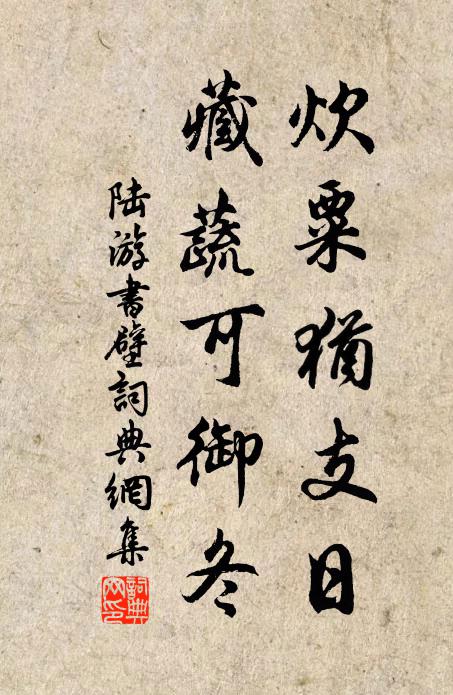 炊粟猶支日
藏蔬可御冬
陆游書壁詞典網集
詞典网印